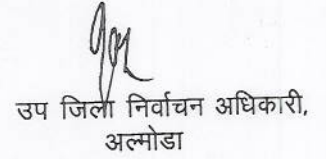 उप जिला निर्वाचन अधिकारी,
अल्मोडा